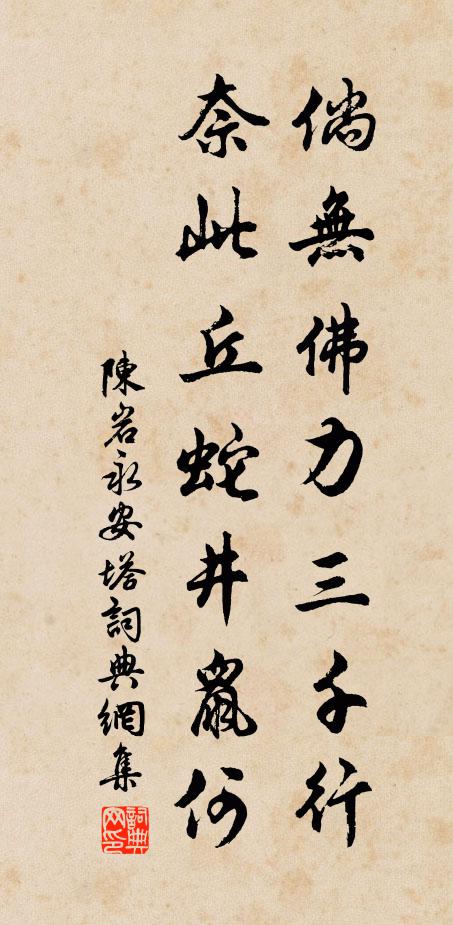 倘無佛力三千行
奈此丘蛇井鼠何
陳岩永安塔詞典網集
詞典网印